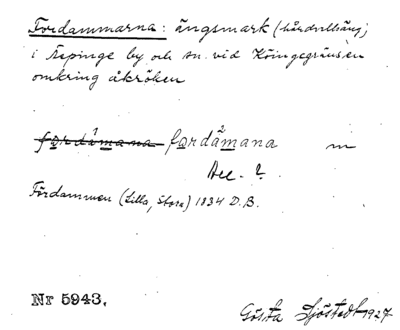 Fordammarna: ängsmark (hårdvallsäng)
i Äspinge by och sn. vid Köingegränsen
omkring åkröken
fordàmana fordàmana m
2
Acc. 2
Fördammen (Lilla, Stora) 1834 D.B.
Nr 5943.
Gösta Sjöstedt 1927